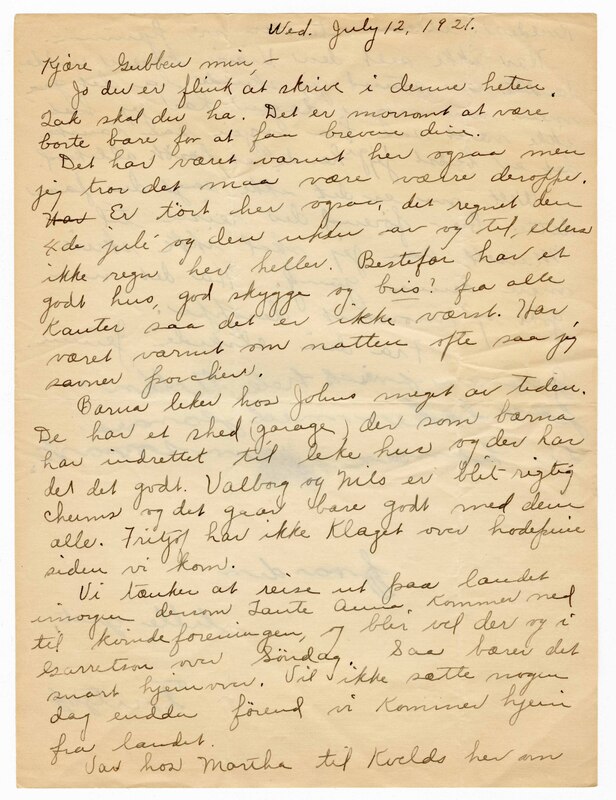 Wed. July 12, 1921.
Kjære Gubben min, –
Jo du er flink at skrive i denne heten.
Tak skal du ha. Det er morsomt at være
borte bare for at faa brevene dine.
Det har været varmt her ogsaa men
jeg tror det maa være værre deroppe.
Har Er tört her ogsaa, det regnet den
4de juli og den uken av og til, ellers
ikke regn her heller. Bestefar har et
godt hus, god skygge og bris? fra alle
Kanter saa det er ikke værst. Har
været varmt om natten ofte saa jeg
savner porchen.
Barna leker hos Johns meget av tiden.
De har et shed (garage) der som barna
har indrettet til leke hus og der har
det det godt. Valborg og Nils er blit rigtig
chums og det gaar bare godt med dem
alle. Fritjof har ikke Klaget over hodepine
siden vi kom.
Vi tænker at reise ut paa landet
imorgen dersom Tante Anna Kommer ned
til kvindeforeningen, og blir vel der og i
Garretson over Söndag. Saa bærer det
snart hjemover. Vil ikke sætte nogen
dag endda förend vi Kommer hjem
fra landet.
Var hos Martha til Kvelds her om